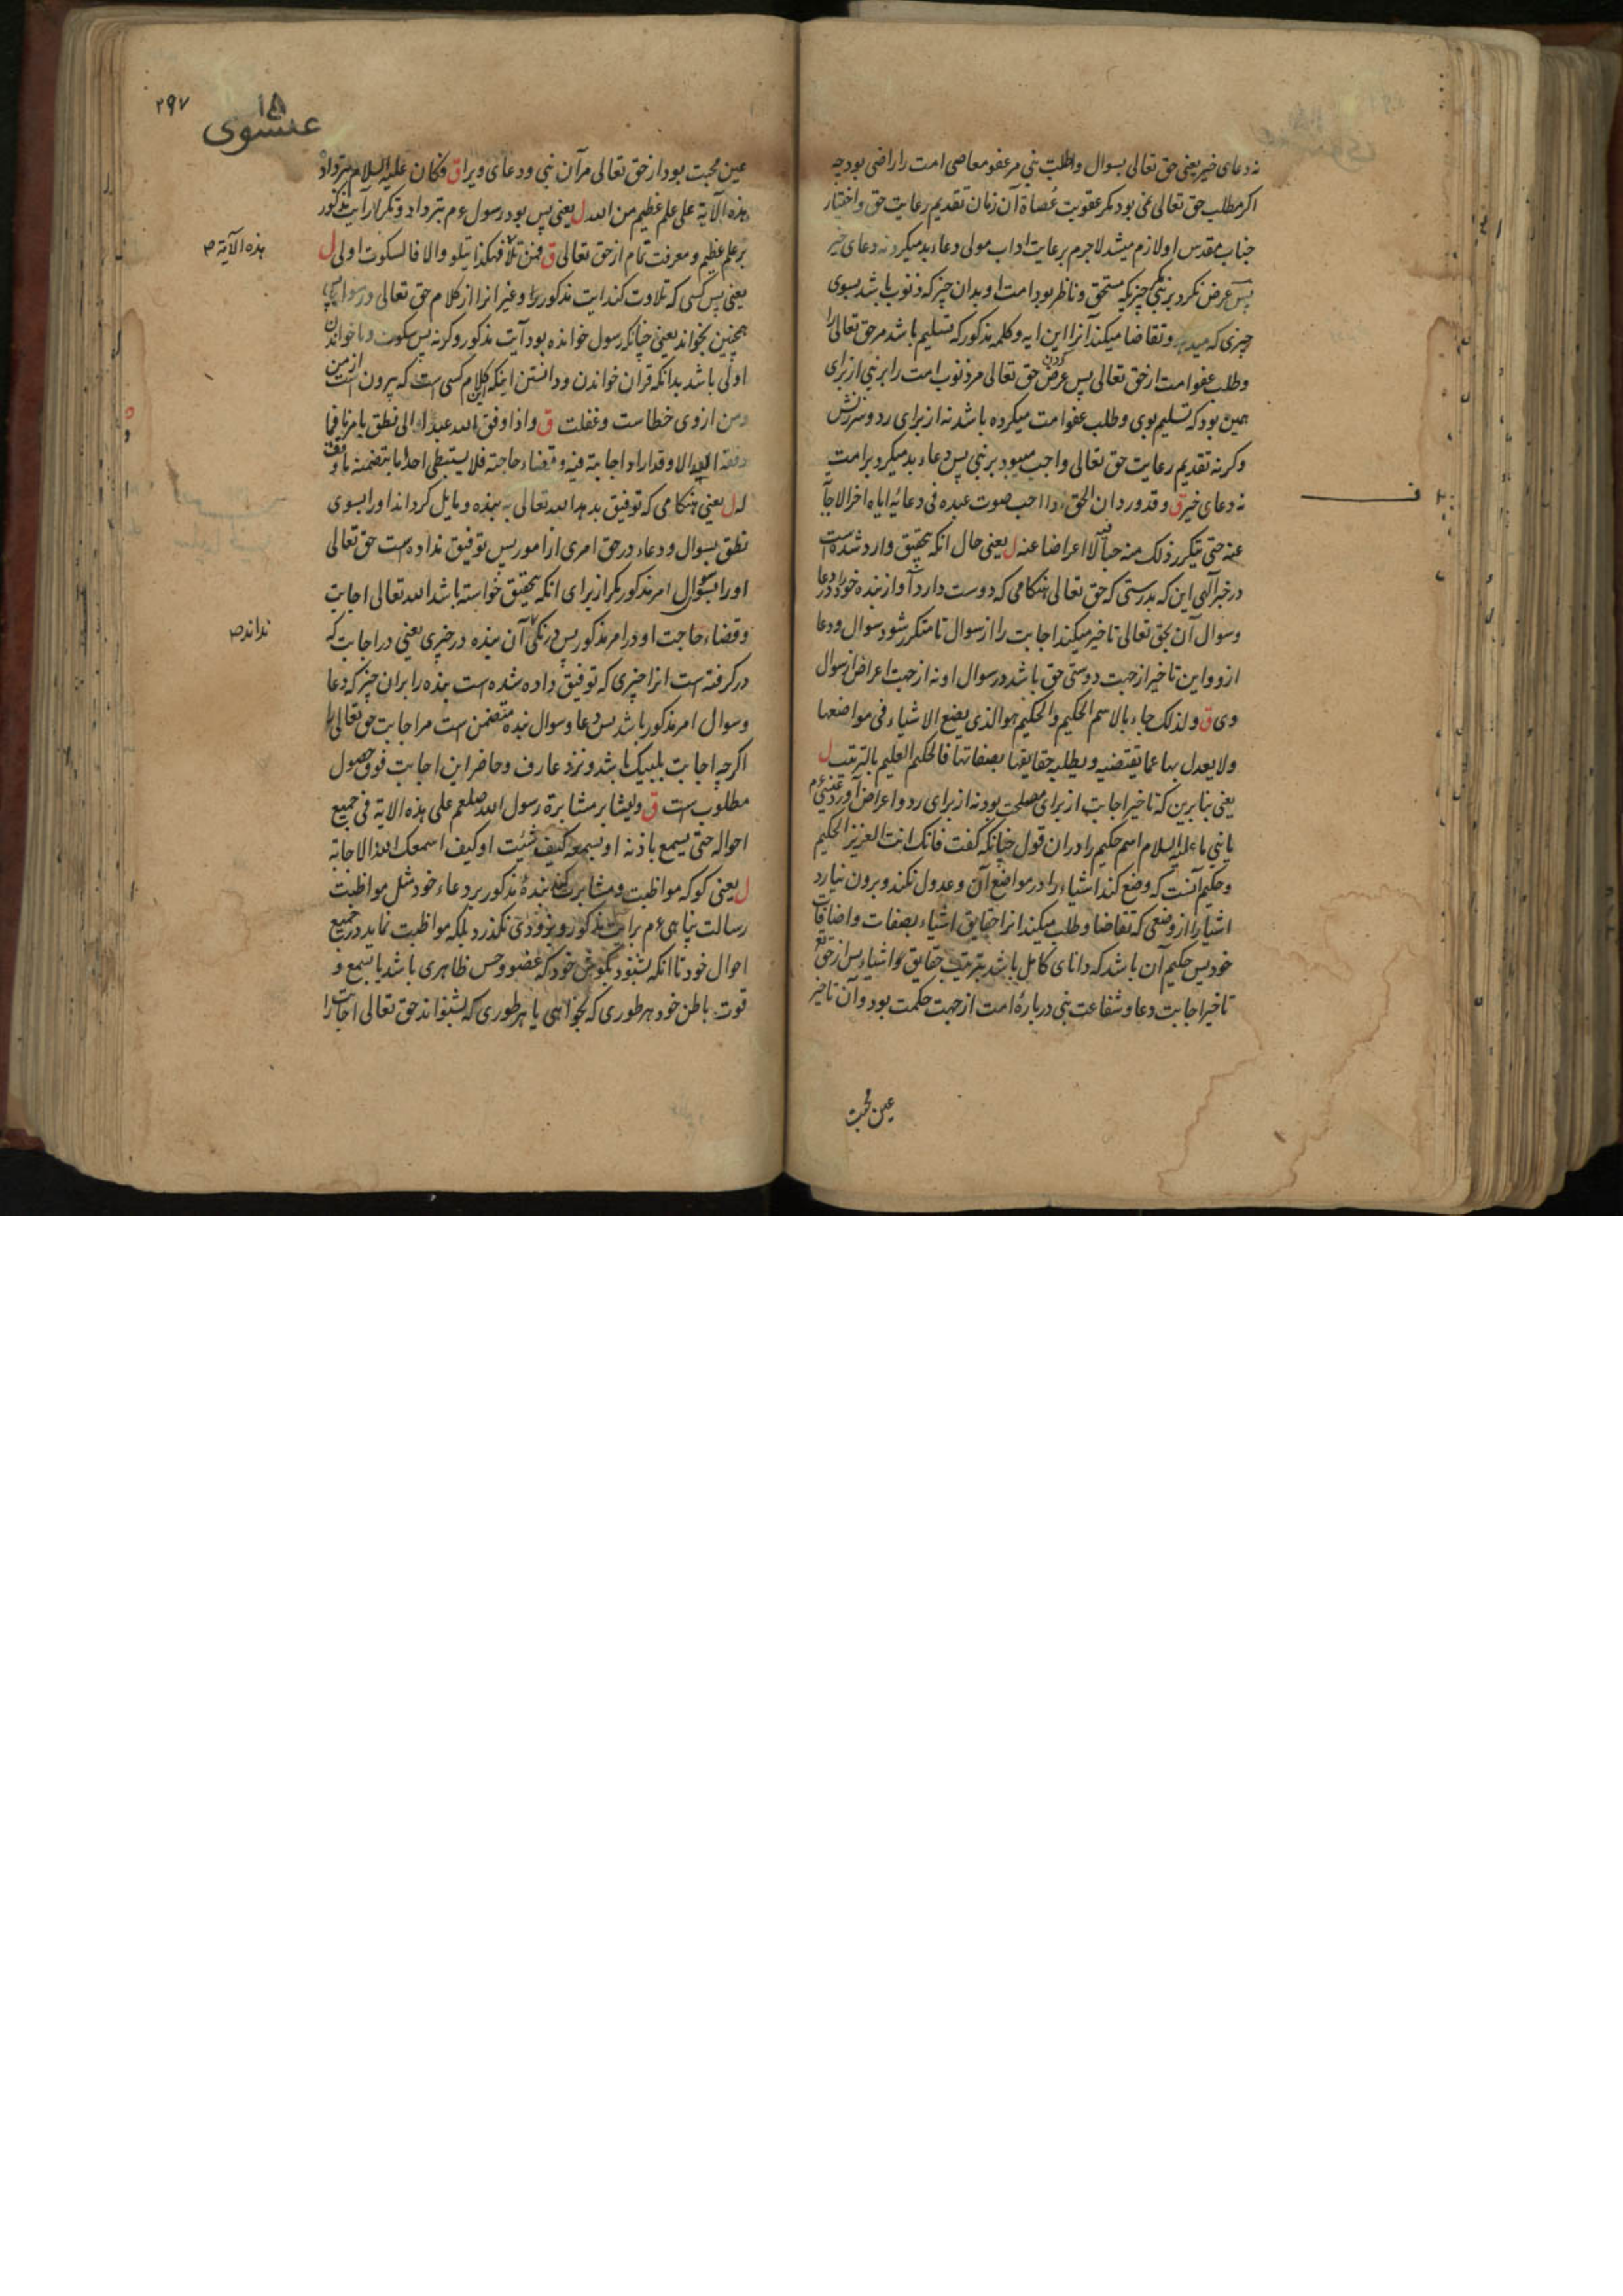 نه دعای خیر یعنی حق تعالی بسوال و طلب نبی مر عفو معاصی امت را راضی بود چه
اکر مطلب حق تعالی نمی بود مکر عقوبت عصاة آن زمان تقدیم رعایت حق و اختیار
جناب مقدس او لازم میشد لاجرم برعایت اداب مولی دعاء بد میکرد نه دعای خیر
پس عرض نکرد بر نبی چیزیکه مستحق و ناظر بود امت او بدان چیز که ذنوب باشد بسوی
چیزی که میدهد و تقاضا میکند آنرا این ایه و کلمه مذکور که تسلیم باشد مر حق تعالی را
و طلب عفو امت از حق تعالی پس عرض کردن حق تعالی مر ذنوب امت را بر نبی از برای
همین بود که تسلیم بوی و طلب عفو امت میکرده باشد نه از برای رد و سرزنش
وکرنه تقدیم رعایت حق تعالی واجب میبود بر نبی پس دعاء بد میکرد بر امت
نه دعای خیر ق و قد ورد ان الحق اذا احب صوت عبده فی دعائه ایاه اخر الاجابة
عنه حتی یتکرر ذلک منه حبا فیه لا اعراضا عنه ل یعنی حال انکه بتحقیق وارد شده است
در خبر آلهی این که بدرستی که حق تعالی هنکامی که دوست دارد آواز بنده خود را در دعا
و سوال آن بحق تعالی تاخیر میکند اجابت را از سوال تا متکرر شود سوال و دعا
ازو و این تاخیر از جهت دوستی حق باشد در سوال او نه از جهت اعراض از سوال
وی ق و لذلک جاء بالاسم الحکیم و الحکیم هو الذی یضع الاشیاء فی مواضعها
ولا یعدل بها عما یقتضیه و یطلبه حقایقها بصفاتها فالحکیم العلیم بالترتیب ل
یعنی بنابرین که تاخیر اجابت از برای مصلحت بود نه از برای رد و اعراض آورد
علیه السلام اسم حکیم را در ان قول چنانکه کفت فانک انت العزیز الحکیم
و حکیم آنست که وضع کند اشیاء را در مواضع آن و عدول نکند و برون نیارد
اشیا را از وضعی که تقاضا و طلب میکند انرا حقایق اشیاء بصفات و اضافات
خود پس حکیم آن باشد که دانای کامل باشد بترتیب حقایق و اشیاء پس از حق تع
تاخیر اجابت دعا و شفاعت نبی درباره امت از جهت حکمت بود و آن تاخیر
عین محبت
۲۹۷
۱۵
عیسوی
عین محبت بود از حق تعالی مر آن نبی و دعای ویرا ق فکان علیه السلام بترداد
هذه الآیة علی علم عظیم من الله ل یعنی پس بود رسول عم بترداد و تکرار آیت مذکور
بر علم عظیم و معرفت تمام از حق تعالی ق فمن تلا فهکذا یتلو والا فالسکوت اولی ل
هذه الآیة ص
یعنی پس کسی که تلاوت کند ایت مذکور را و غیر انرا از کلام حق تعالی و رسول پس
همچنین بخواند یعنی چنانکه رسول خوانده بود آیت مذکور وکرنه پس سکوت و ناخواندن
اولی باشد بدانکه قران خواندن و دانستن اینکه این کلام کسی است که بیرون از من است
و من ازوی خطاست و غفلت ق و اذا وفق الله عبدا الی نطق بامر ما فما
وفقه الیه الا و قد اراد اجابته فیه و قضاء حاجته فلا یستبطی احد ما یتضمنه ما وفق
له ل یعنی هنکامی که توفیق بدهد الله تعالی به بنده و مایل کرداند او را بسوی
نطق بسوال و دعاء در حق امری از امور پس توفیق نداده است حق تعالی
او را بسوی سوال امر مذکور مکر از برای انکه بتحقیق خواسته باشد الله تعالی اجابت
و قضاء حاجت او در امر مذکور پس درنکی آن بنده در چیزی یعنی در اجابت که
نداند ص
در کرفته است انرا چیزی که توفیق داده شده است بنده را بران چیز که دعا
و سوال امر مذکور باشد پس دعا و سوال بنده متضمن است مر اجابت حق تعالی را
اکرچه اجابت بلبیک باشد و نزد عارف و حاضر این اجابت فوق حصول
مطلوب است ق ولیثابر مثابرة رسول الله صلعم علی هذه الایة فی جمیع
احواله حتی یسمع باذنه او بسمعه کیف شئت او کیف اسمعک الله الاجابة
ل یعنی کو که مواظبت و مثابرت کند بنده مذکور بر دعاء خود مثل مواظبت
رسالت پناهی عم بر ایت مذکور و بزودی نکذرد بلکه مواظبت نماید در جمیع
احوال خود تا انکه بشنود بکوش خود که عضو و حس ظاهری باشد یا بسمع و
قوت باطن خود هر طوری که بخواهی یا هر طوری که بشنواند حق تعالی اجابت را